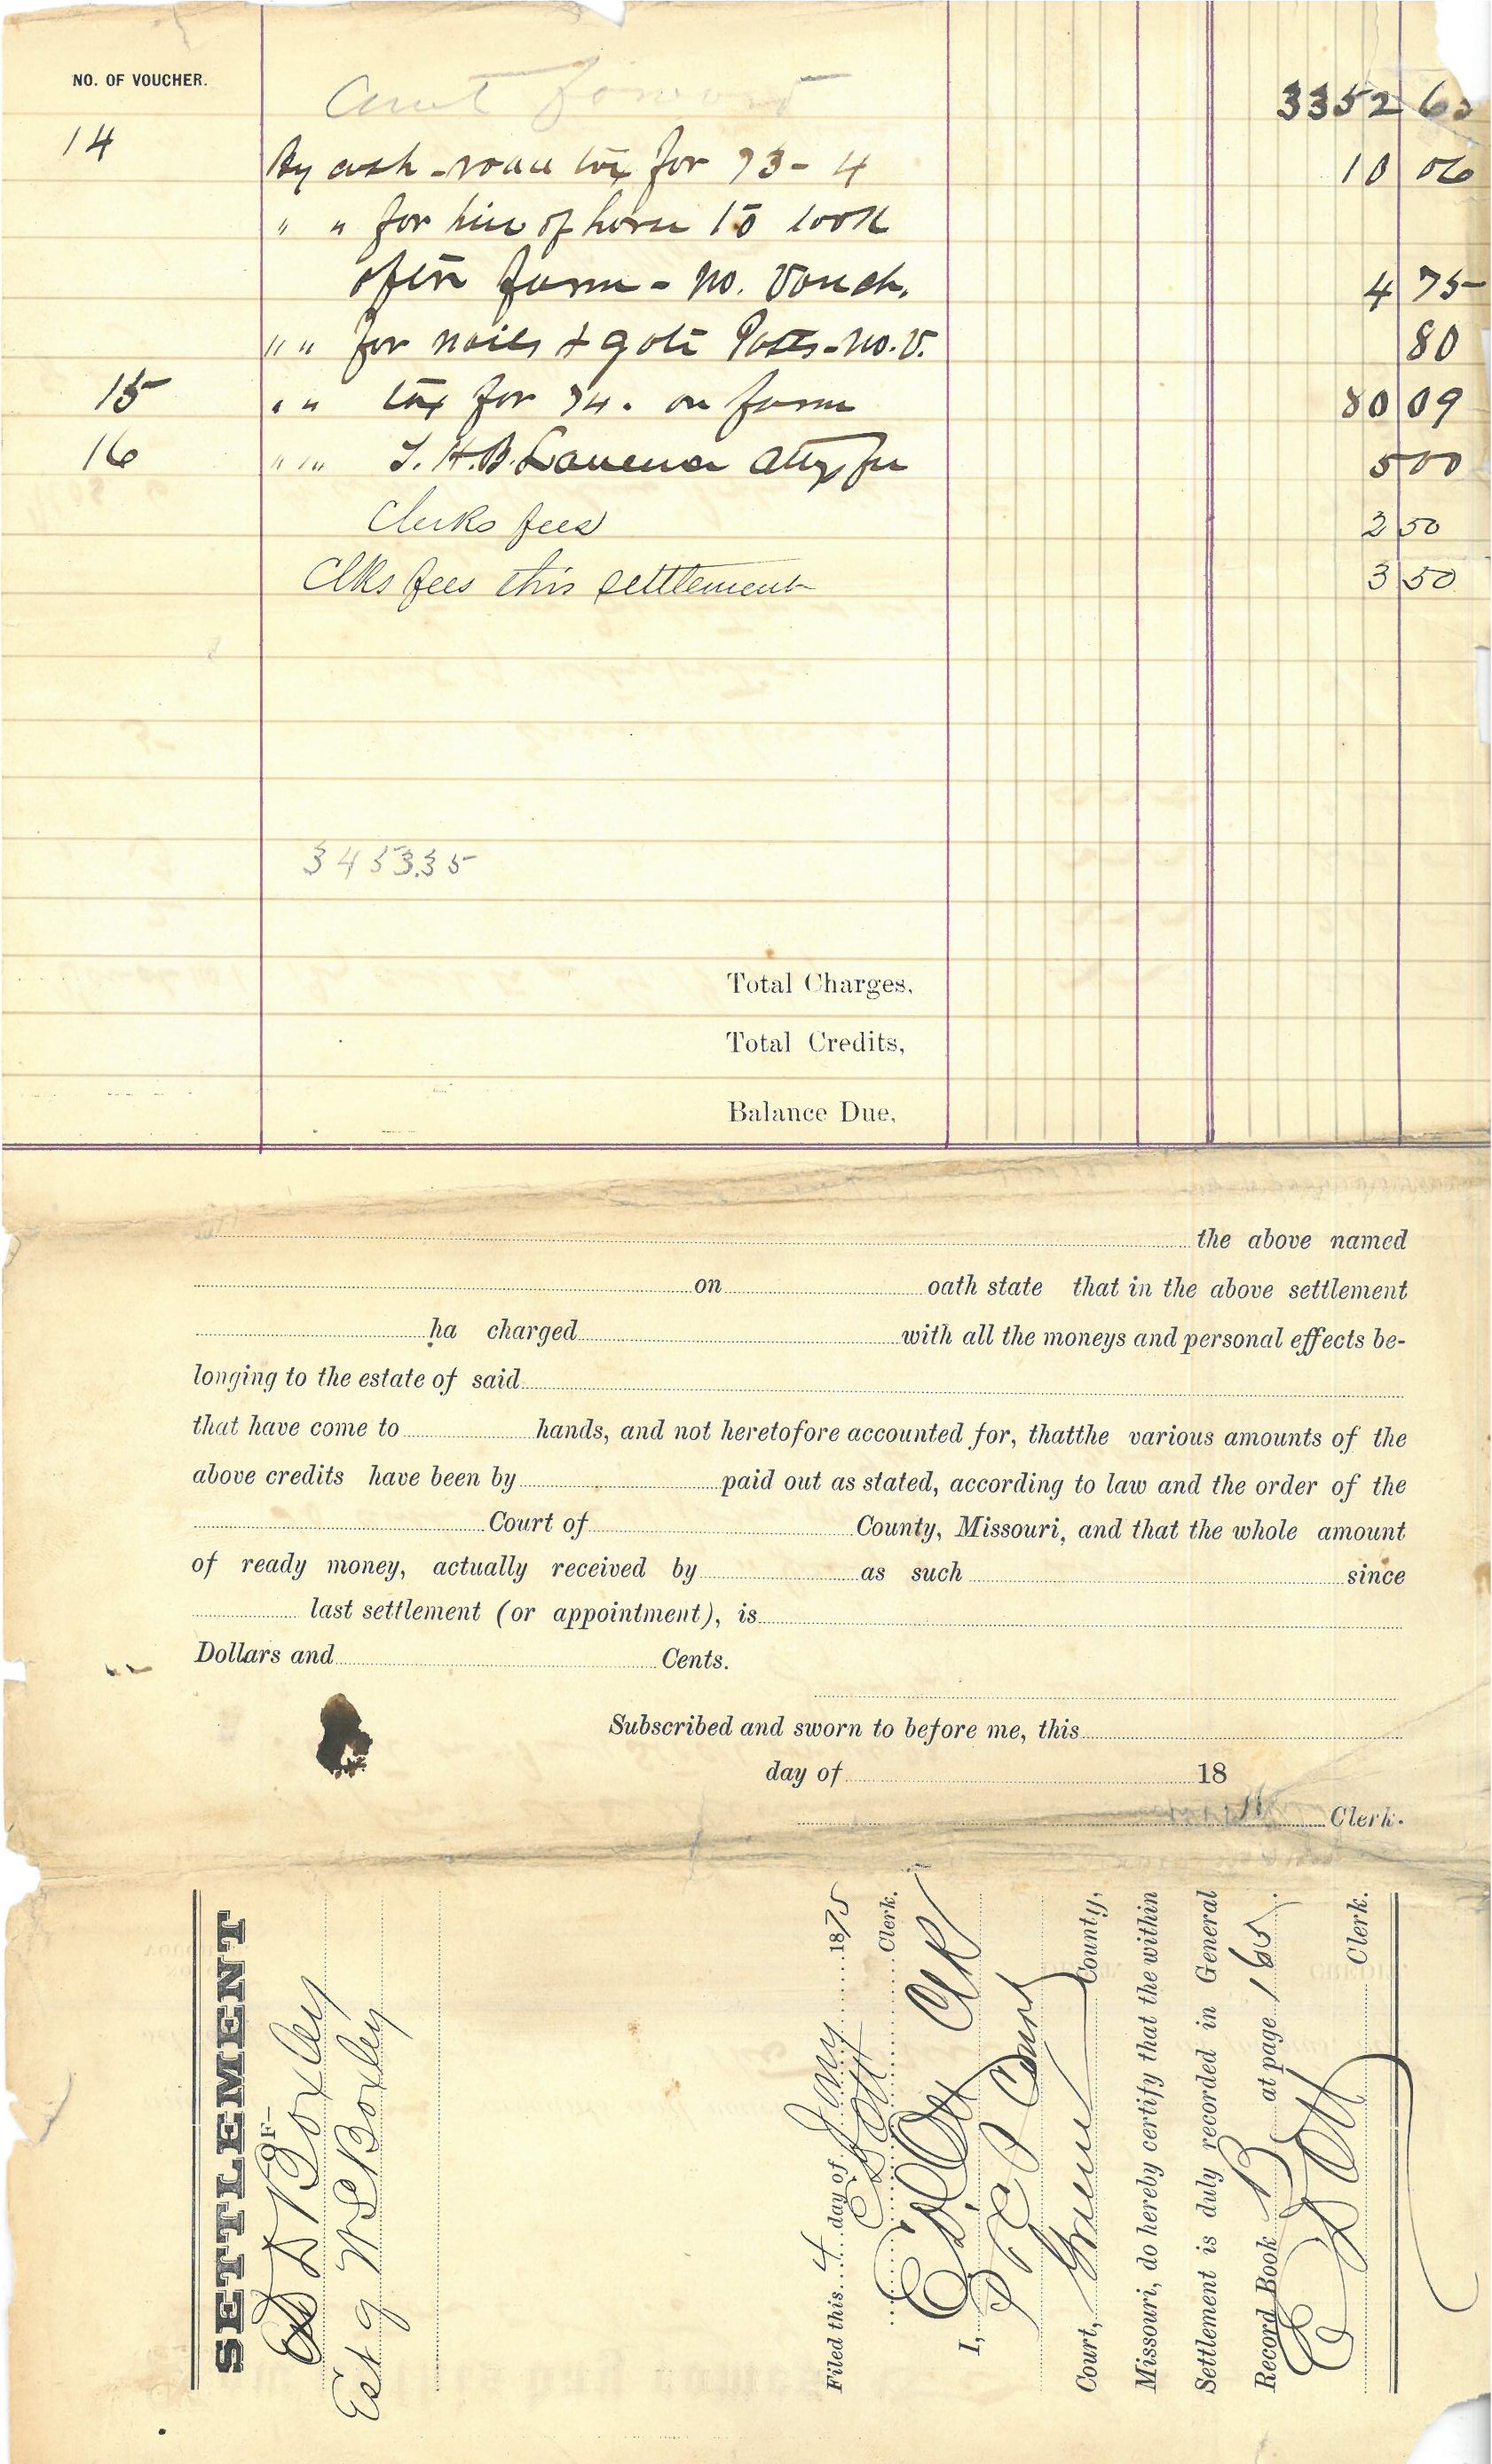 NO. OF VOUCHER.
Amt forward 3352 60
14 By cash - road tax for 73-4 10 06
" " for hire of horse to look
after farm - no. vouch. 4 75
" " for nails & gate Posts - no. v. 80
15 " " tax for 74. on farm 80 09
16 " " T. H. B. Lawrence atty fee 5 00
Clerks fees 2 50
Clks fees this settlement 3 50
3453.35
Total Charges,
Total Credits,
Balance Due,
the above named
on oath state that in the above settlement
ha charged with all the moneys and personal effects be-
longing to the estate of said
that have come to hands, and not heretofore accounted for, thatthe various amounts of the
above credits have been by paid out as stated, according to law and the order of the
Court of County, Missouri, and that the whole amount
of ready money, actually received by as such since
last settlement (or appointment), is
Dollars and Cents.
Subscribed and sworn to before me, this
day of 18
Clerk.
SETTLEMENT
OF
D Boxley
Est of W S Boxley
Filed this 4 day of Jany 1875
E D Ott Clerk.
I, E D Ott Clk
P & C Court
Court, Greene County,
Missouri, do hereby certify that the within
Settlement is duly recorded in General
Record Book B at page 165.
E D Ott Clerk.